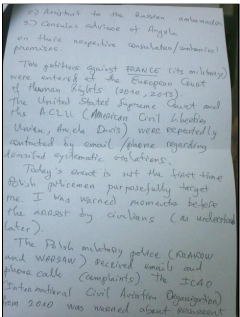 2) Assistant to the Russian ambassador
3) Consular advisor of Angola
on their respective consulates/embassies'
premises.
Two petitions against FRANCE (its military)
were entered at the European Court
of Human Rights (2010, 2013)
The United States Supreme Court and
the ACLU (American Civil Liberties
Union, Angela Davis) were repeatedly
contacted by email/phone regarding
detailed systematic violations.
Today's event is not the first time
Polish policemen purposefully target
me. I was warned moments before
the arrest by civilians (as understood
later).
The Polish military police (KRAKOW
and WARSAW) received emails and
phone calls (complaints) The ICAO
(International Civil Aviation Organization)
from 2010 was warned about